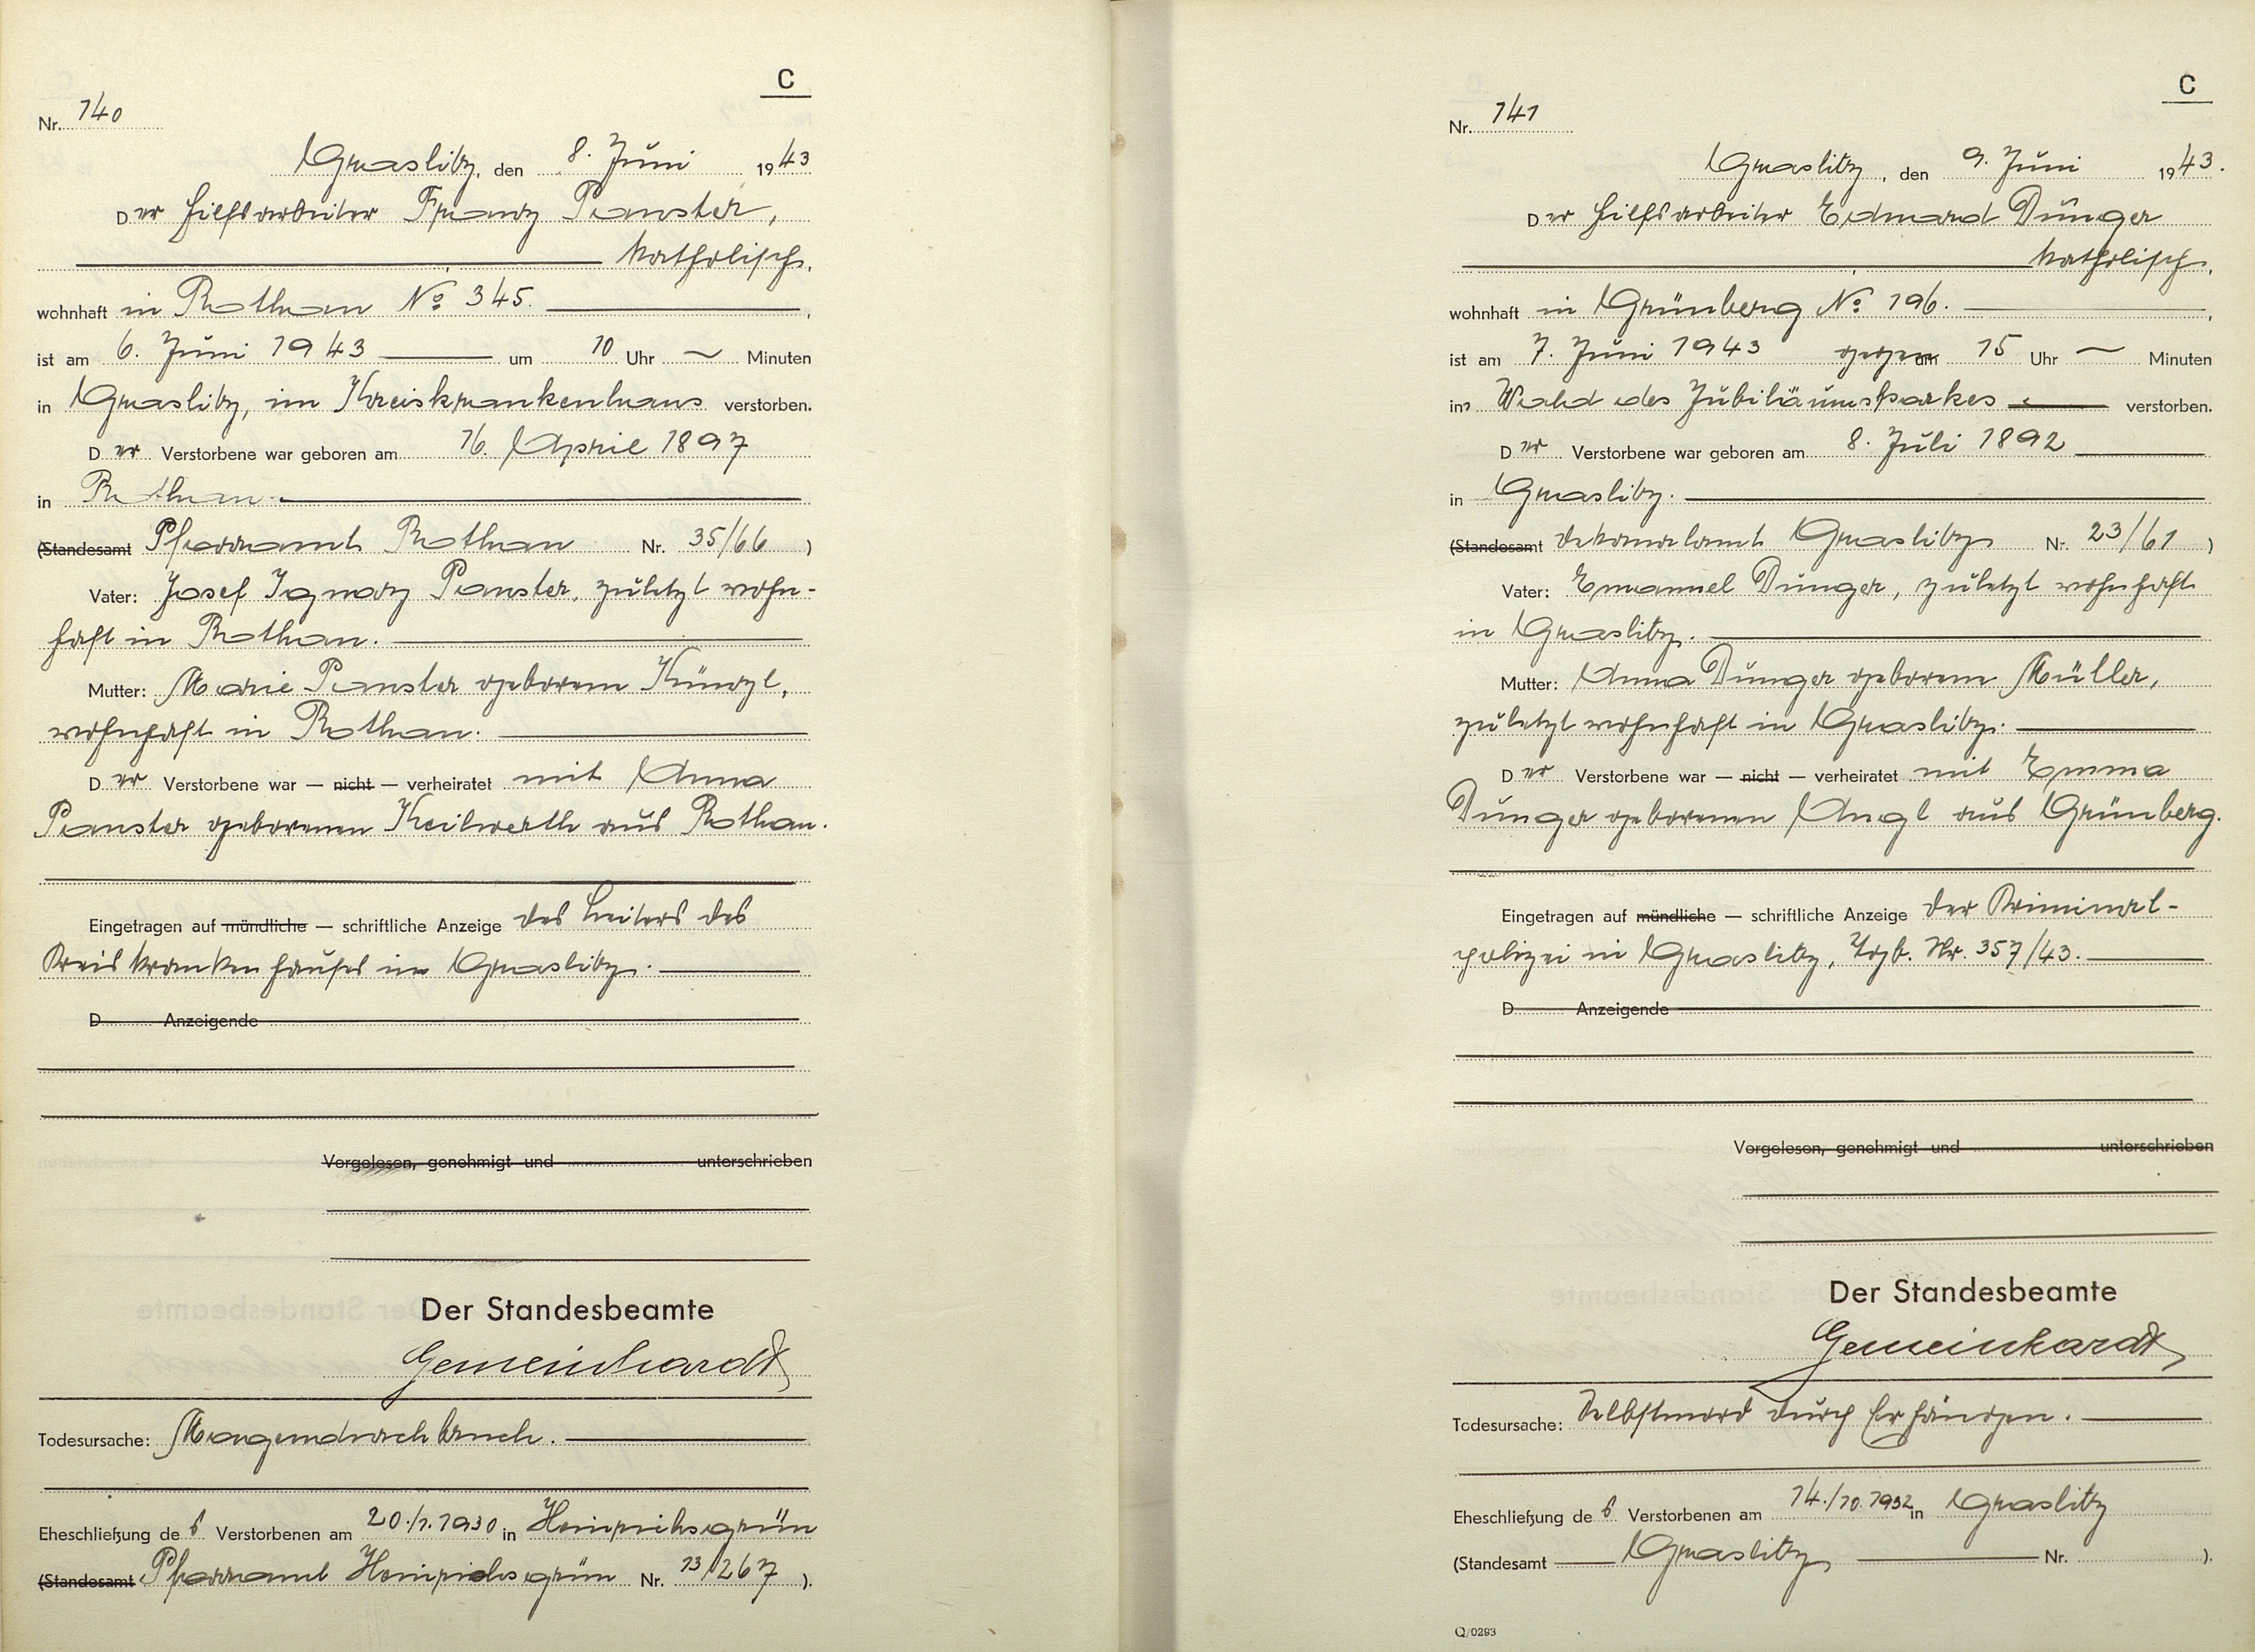 C
Nr. 140
Graslitz, den 8. Juni 1943
Der Hilfsarbeiter Franz Panster,
katholisch,
wohnhaft in Rothau No 345.
ist am 6. Juni 1943 um 10 Uhr ~ Minuten
in Graslitz, im Kreiskrankenhaus verstorben.
Der Verstorbene war geboren am 16. April 1897
in Rothau.
(Standesamt Pfarramt Rothau Nr. 35/66 )
Vater: Josef Ignaz Panster, zuletzt wohn-
haft in Rothau.
Mutter: Marie Panster geborene Künzl,
wohnhaft in Rothau.
Der Verstorbene war — nicht — verheiratet mit Anna
Panster geborenen Keilwerth aus Rothau.
Eingetragen auf mündliche — schriftliche Anzeige des Leiters des
Kreiskrankenhauses in Graslitz.
D Anzeigende
Vorgelesen, genehmigt und unterschrieben
Der Standesbeamte
Gemeinhardt
Todesursache: Magendurchbruch.
Eheschließung des Verstorbenen am 20./1. 1930 in Heinrichsgrün
(Standesamt Pfarramt Heinrichsgrün Nr. 13/267 ).
C
Nr. 141
Graslitz, den 9. Juni 1943.
Der Hilfsarbeiter Eduard Dunger
katholisch,
wohnhaft in Grünberg No 196.
ist am 7. Juni 1943 gegen um 15 Uhr ~ Minuten
in Wald des Jubiläumsparkes verstorben.
Der Verstorbene war geboren am 8. Juli 1892
in Graslitz.
(Standesamt Dekanalamt Graslitz Nr. 23/61 )
Vater: Emanuel Dunger, zuletzt wohnhaft
in Graslitz.
Mutter: Anna Dunger geborene Müller,
zuletzt wohnhaft in Graslitz.
Der Verstorbene war — nicht — verheiratet mit Emma
Dunger geborenen Angl aus Grünberg.
Eingetragen auf mündliche — schriftliche Anzeige der Kriminal-
polizei in Graslitz, Tgb. Nr. 357/43.
D Anzeigende
Vorgelesen, genehmigt und unterschrieben
Der Standesbeamte
Gemeinhardt
Todesursache: Selbstmord durch Erhängen.
Eheschließung des Verstorbenen am 14./10. 1932 in Graslitz
(Standesamt Graslitz Nr. ).
Q/0293